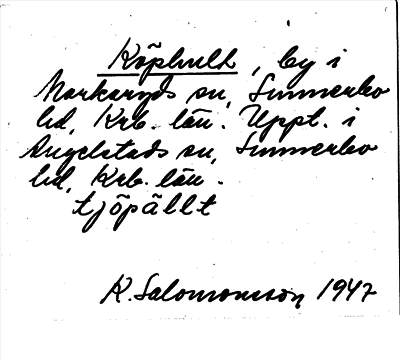 Köphult, by i
Markaryds sn, Sunnerbo
hd, Krb. län. Uppt. i
Angelstads sn, Sunnerbo
hd, Krb. län.
tjöpällt
K. Salomonsson 1947